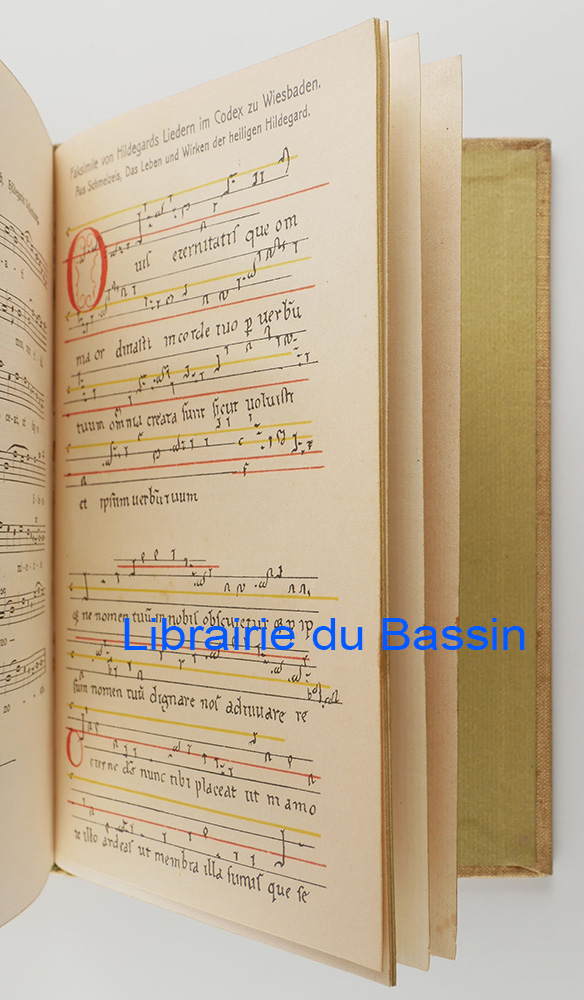 Faksimile von Hildegards Liedern im Codex zu Wiesbaden.
Aus Schmelzeis, Das Leben und Wirken der heiligen Hildegard.
O uis eternitatis que om
ma or dinasti in corde tuo p̱ uerbū
tuum omnia creata sunt sicut uoluisti
et ipsum uerbū tuum
ne nomen tuū in nobis obscuretur
Librairie du Bassin
sum nomen tuū dignare nos adiuuare
O eterne ds nunc tibi placeat ut in amo
re isto ardeas ut membra illa simus que fe